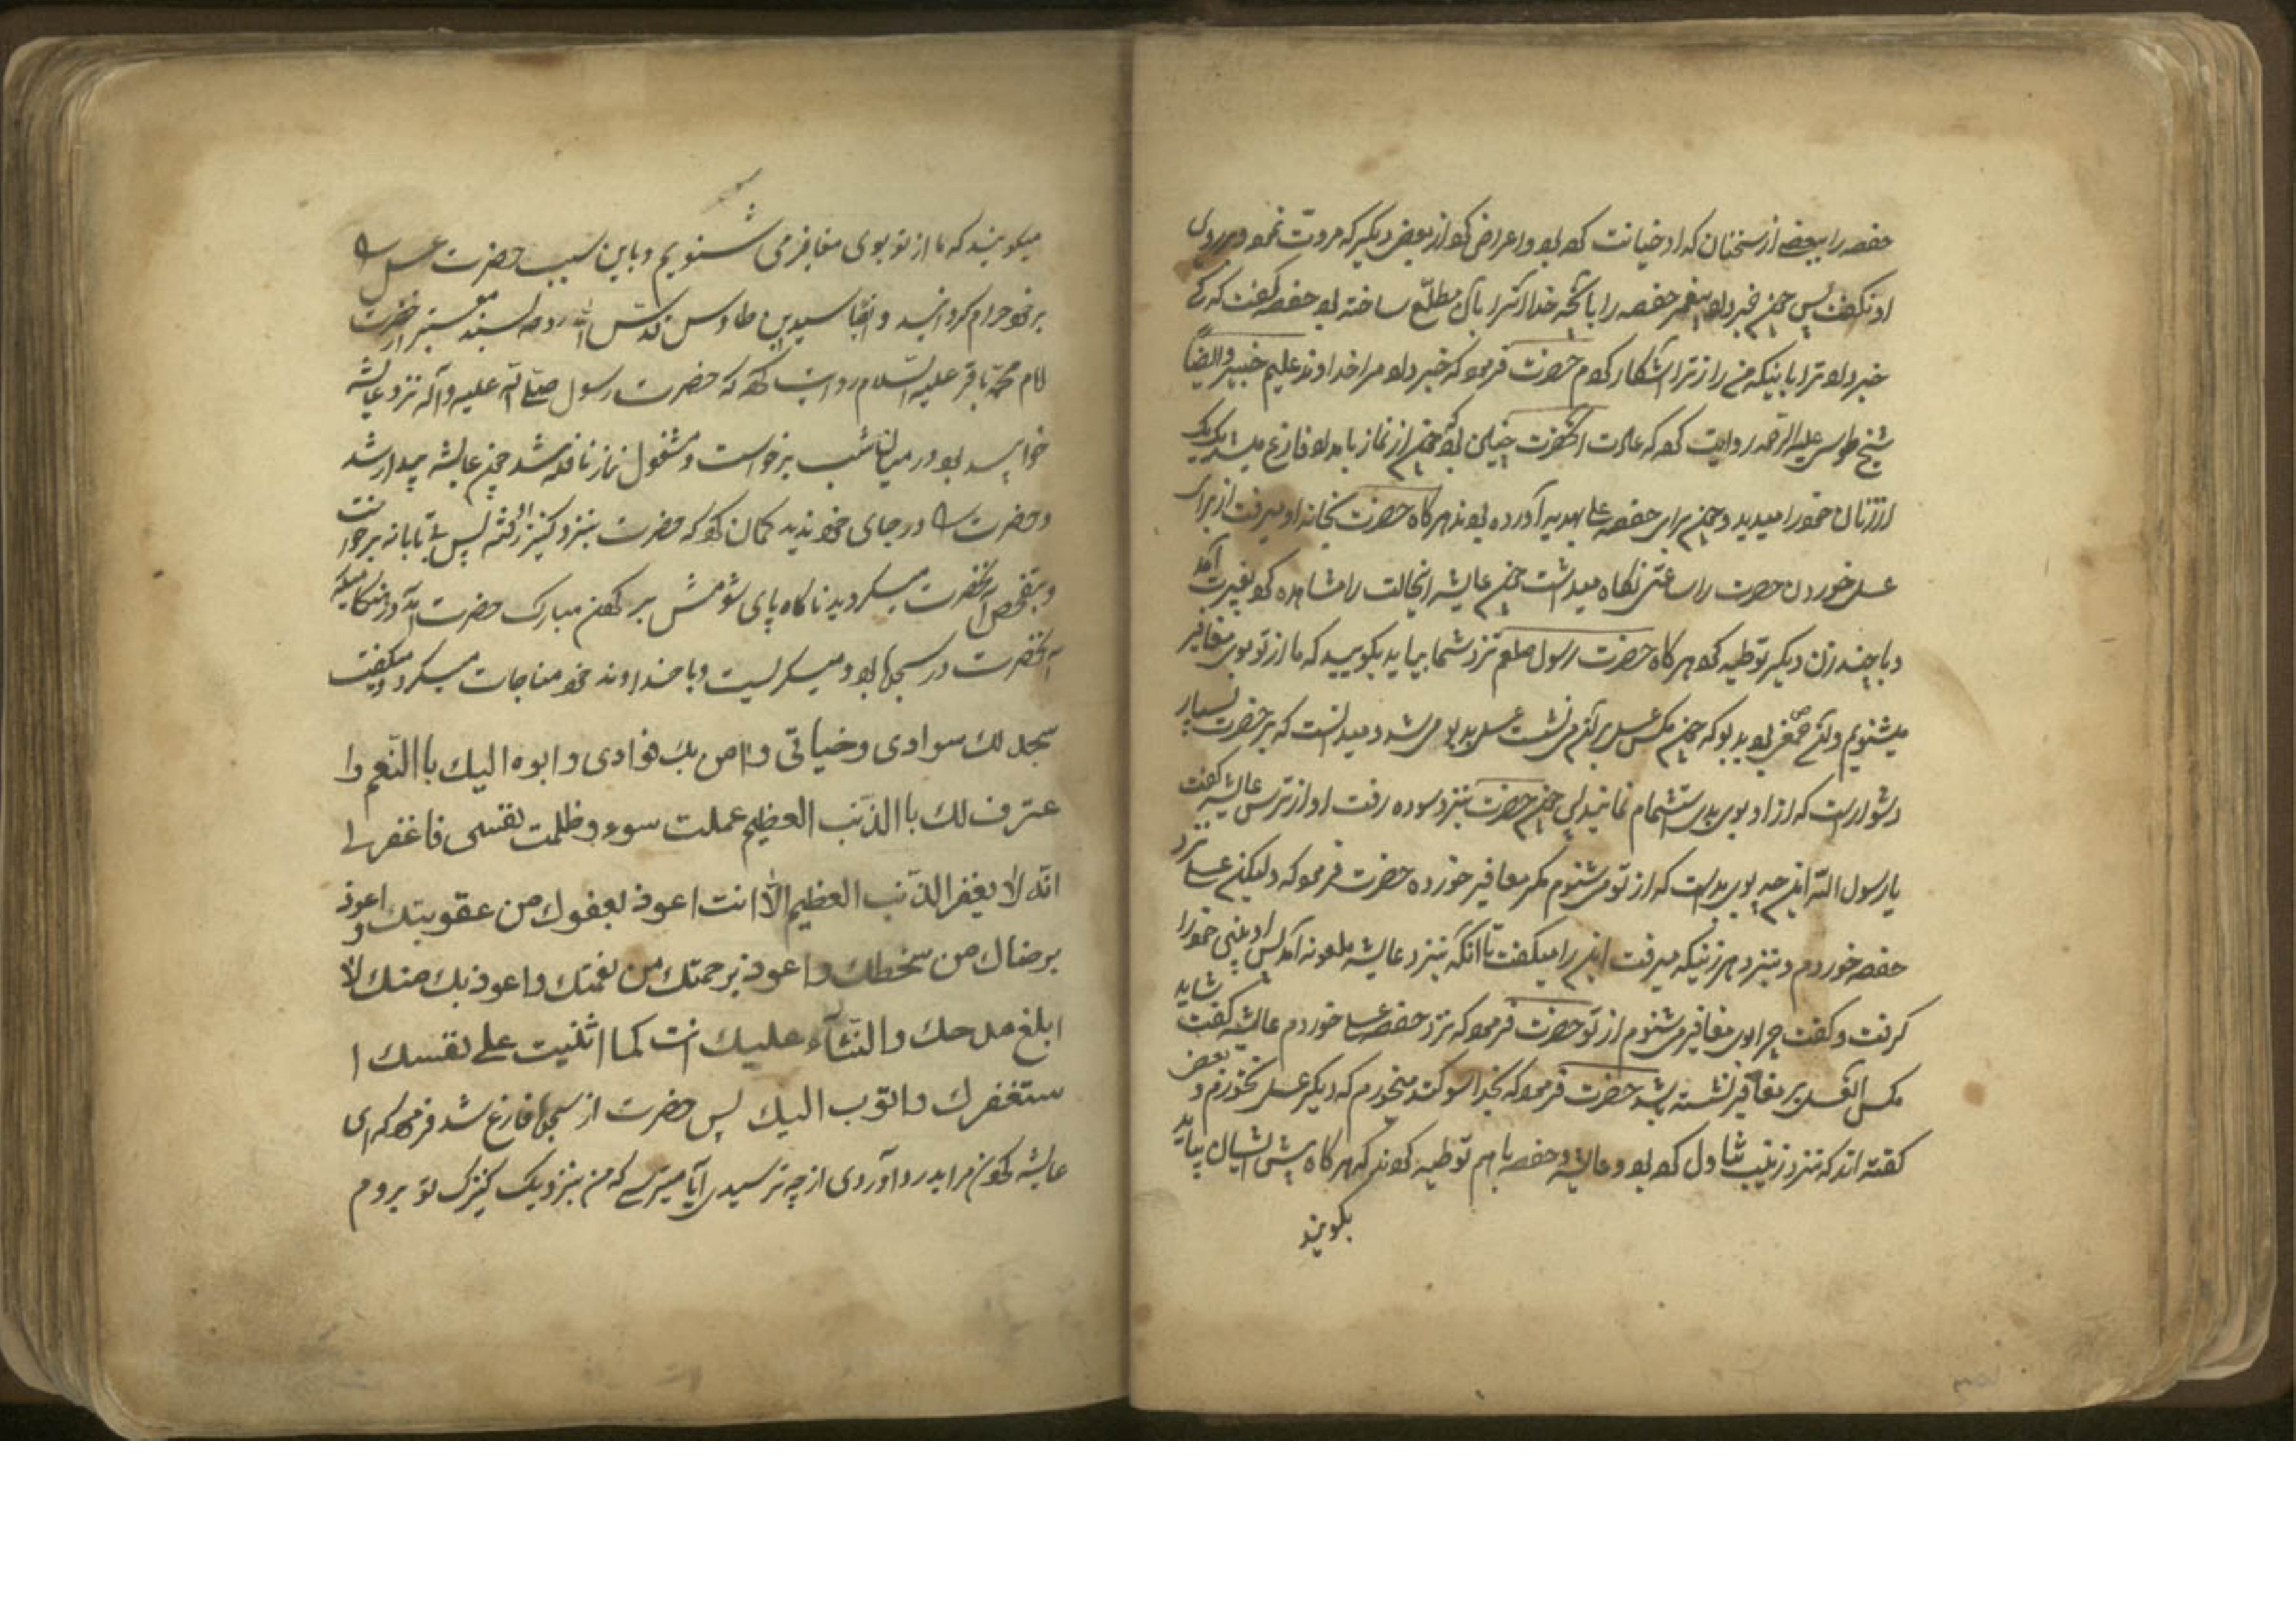 حفصه را ببعضی از سخنان که او خیانت کرده بود و اعراض کرد از بعض دیگر که مروت نمود و بر روی
او نگفت پس چون خبر داد پیغمبر حفصه را بآنچه خدا آنسرا بآن مطلع ساخته بود حفصه گفت که کی
خبر داد ترا باینکه من راز ترا آشکار کردم حضرت فرمود که خبر داد مرا خداوند علیم خبیر و ایضاً
شیخ طوسی علیه الرحمه روایت کرده که عادت آنحضرت چنین بود چون از نماز بامداد فارغ میشد یک یک
از زنان خود را میدید و چون برای حفصه عسلی بهدیه آورده بودند هرگاه حضرت بخانه او میرفت از برای
عسل خوردن حضرت را ساعتی نگاه میداشت چون عایشه اینحالت را مشاهده کرد بغیرت آمد
و با چند زن دیگر توطیه کرد هرگاه حضرت رسول صلعم نزد شما بیاید بگویید که ما از تو بوی مغافیر
میشنویم و آن صمغی بود بدبو که چون مگس عسل بر آن می نشست عسل بدبو می شد و میدانست که بر حضرت بسیار
دشوار است که از او بوی بد استشمام نمایند پس چون حضرت بنزد سوده رفت او از ترس عایشه گفت
یا رسول الله این چه بوی بد است که از تو می شنوم مگر مغافیر خورده حضرت فرمود که ولیکن عسلی نزد
حفصه خوردم و بنزد هر زنیکه میرفت این را میگفت تا آنکه بنزد عایشه ملعونه آمد پس او بینی خود را
گرفت و گفت چرا بوی مغافیر می شنوم از تو حضرت فرمود که نزد حفصه عسلی خوردم عایشه گفت شاید
مگس آن عسل بر مغافیر نشسته باشد حضرت فرمود که بخدا سوگند میخورم که دیگر عسل نخورم و بعضی
گفته اند که نزد زینب تناول کرده بود و عایشه و حفصه باهم توطیه کردند که هرگاه پیش ایشان بیاید
بگویند
میگویند که ما از تو بوی مغافیر می شنویم و باین سبب حضرت عسل را
بر خود حرام گردانید و ایضا سید بن طاوس قدس الله روحه بسند معتبر از حضرت
امام محمد باقر علیه السلام روایت کرده که حضرت رسول صلی الله علیه وآله نزد عایشه
خوابیده بود در میان شب برخواست و مشغول نماز نافله شد چون عایشه بیدار شد
و حضرت را در جای خود ندید گمان کرد که حضرت بنزد کنیز او رفته پس بی تابانه برخواست
و تفحص آنحضرت میگردید ناگاه پای شومش بر گردن مبارک حضرت آمد در هنگامیکه
آنحضرت در سجده بود و میگریست و با خداوند خود مناجات میکرد و میگفت
سجد لك سوادی وخیاتی وامن بك فوادی وابوء الیك باالنعم وا
عترف لك باالذنب العظیم عملت سوء وظلمت نفسی فاغفرلی
انّه لا یغفر الذّنب العظیم الّا انت اعوذ بعفوك من عقوبتك و اعوذ
برضاك من سخطك واعوذ برحمتك من نقمتك واعوذ بك منك لا
ابلغ مدحك والثّنآء علیك انت كما اثنیت علی نفسك ا
ستغفرك واتوب الیك پس حضرت از سجده فارغ شد فرمود که ای
عایشه گردن مرا بدرد آوردی از چه ترسیدی آیا میترسی که من بنزد یک کنیزک تو بروم